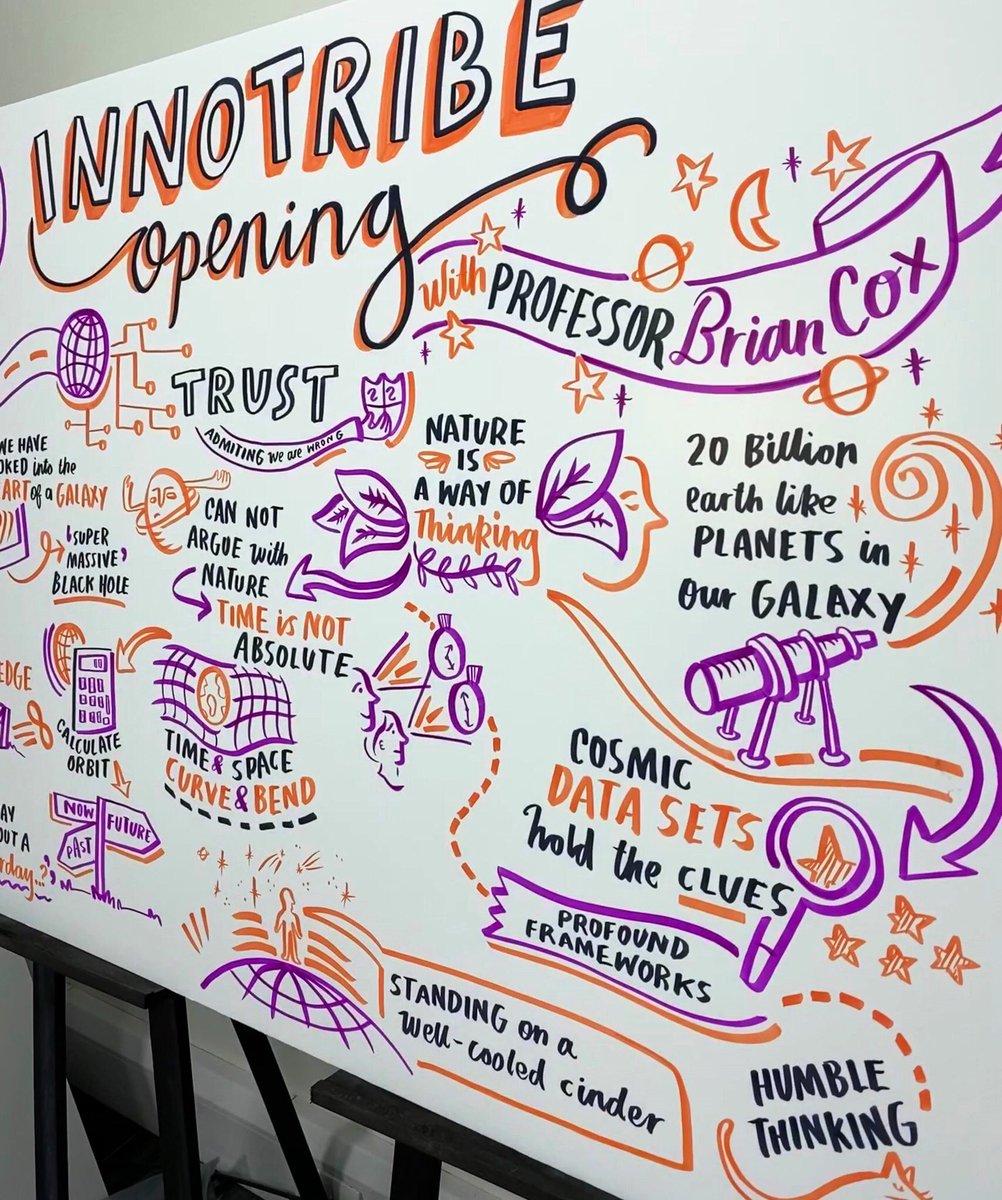 INNOTRIBE
opening
with PROFESSOR Brian Cox
TRUST
ADMITING we are WRONG
WE HAVE
OKED into the
ART of a GALAXY
'SUPER
MASSIVE'
BLACK HOLE
CAN NOT
ARGUE with
NATURE
TIME is NOT
ABSOLUTE
NATURE
IS
A WAY OF
Thinking
20 Billion
earth like
PLANETS in
our GALAXY
EDGE
CALCULATE
ORBIT
TIME & SPACE
CURVE & BEND
NOW
FUTURE
PAST
AY
OUT A
rday...?'
COSMIC
DATA SETS
hold the CLUES
PROFOUND
FRAMEWORKS
STANDING on a
well-cooled cinder
HUMBLE
THINKING